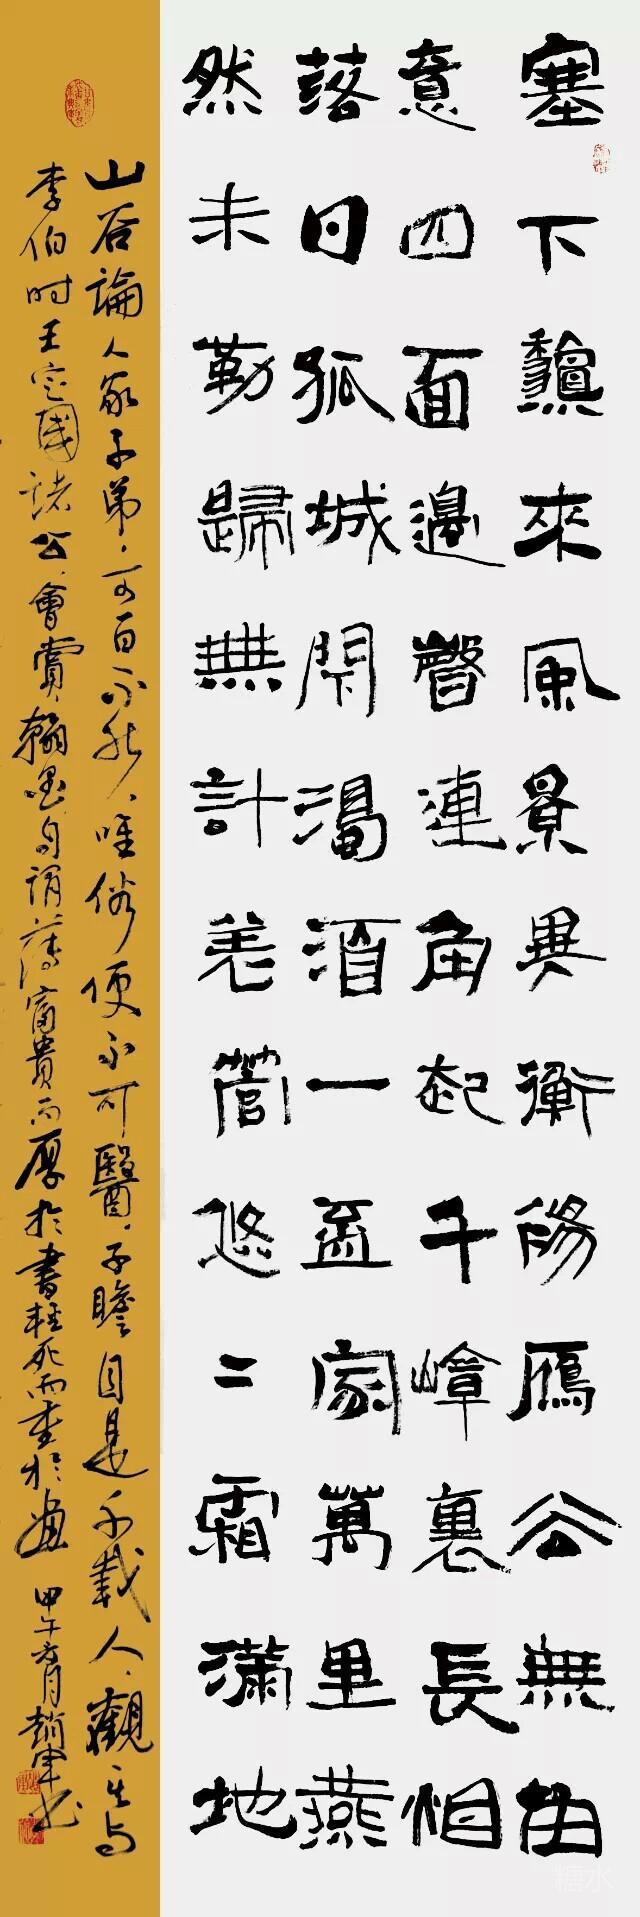 塞下龝來風景異衡陽鴈去無留
意四面邊聲連角起千嶂裏長烟
落日孤城閉濁酒一盃家萬里燕
然未勒歸無計羌管悠二霜滿地
山谷論人家子弟可百不能唯俗便不可醫子瞻自是千載人觀其與
李伯時王定國諸公會賞翰墨自謂薄富貴而厚於書輕死而重於畫 甲午月趙軍書
糖水